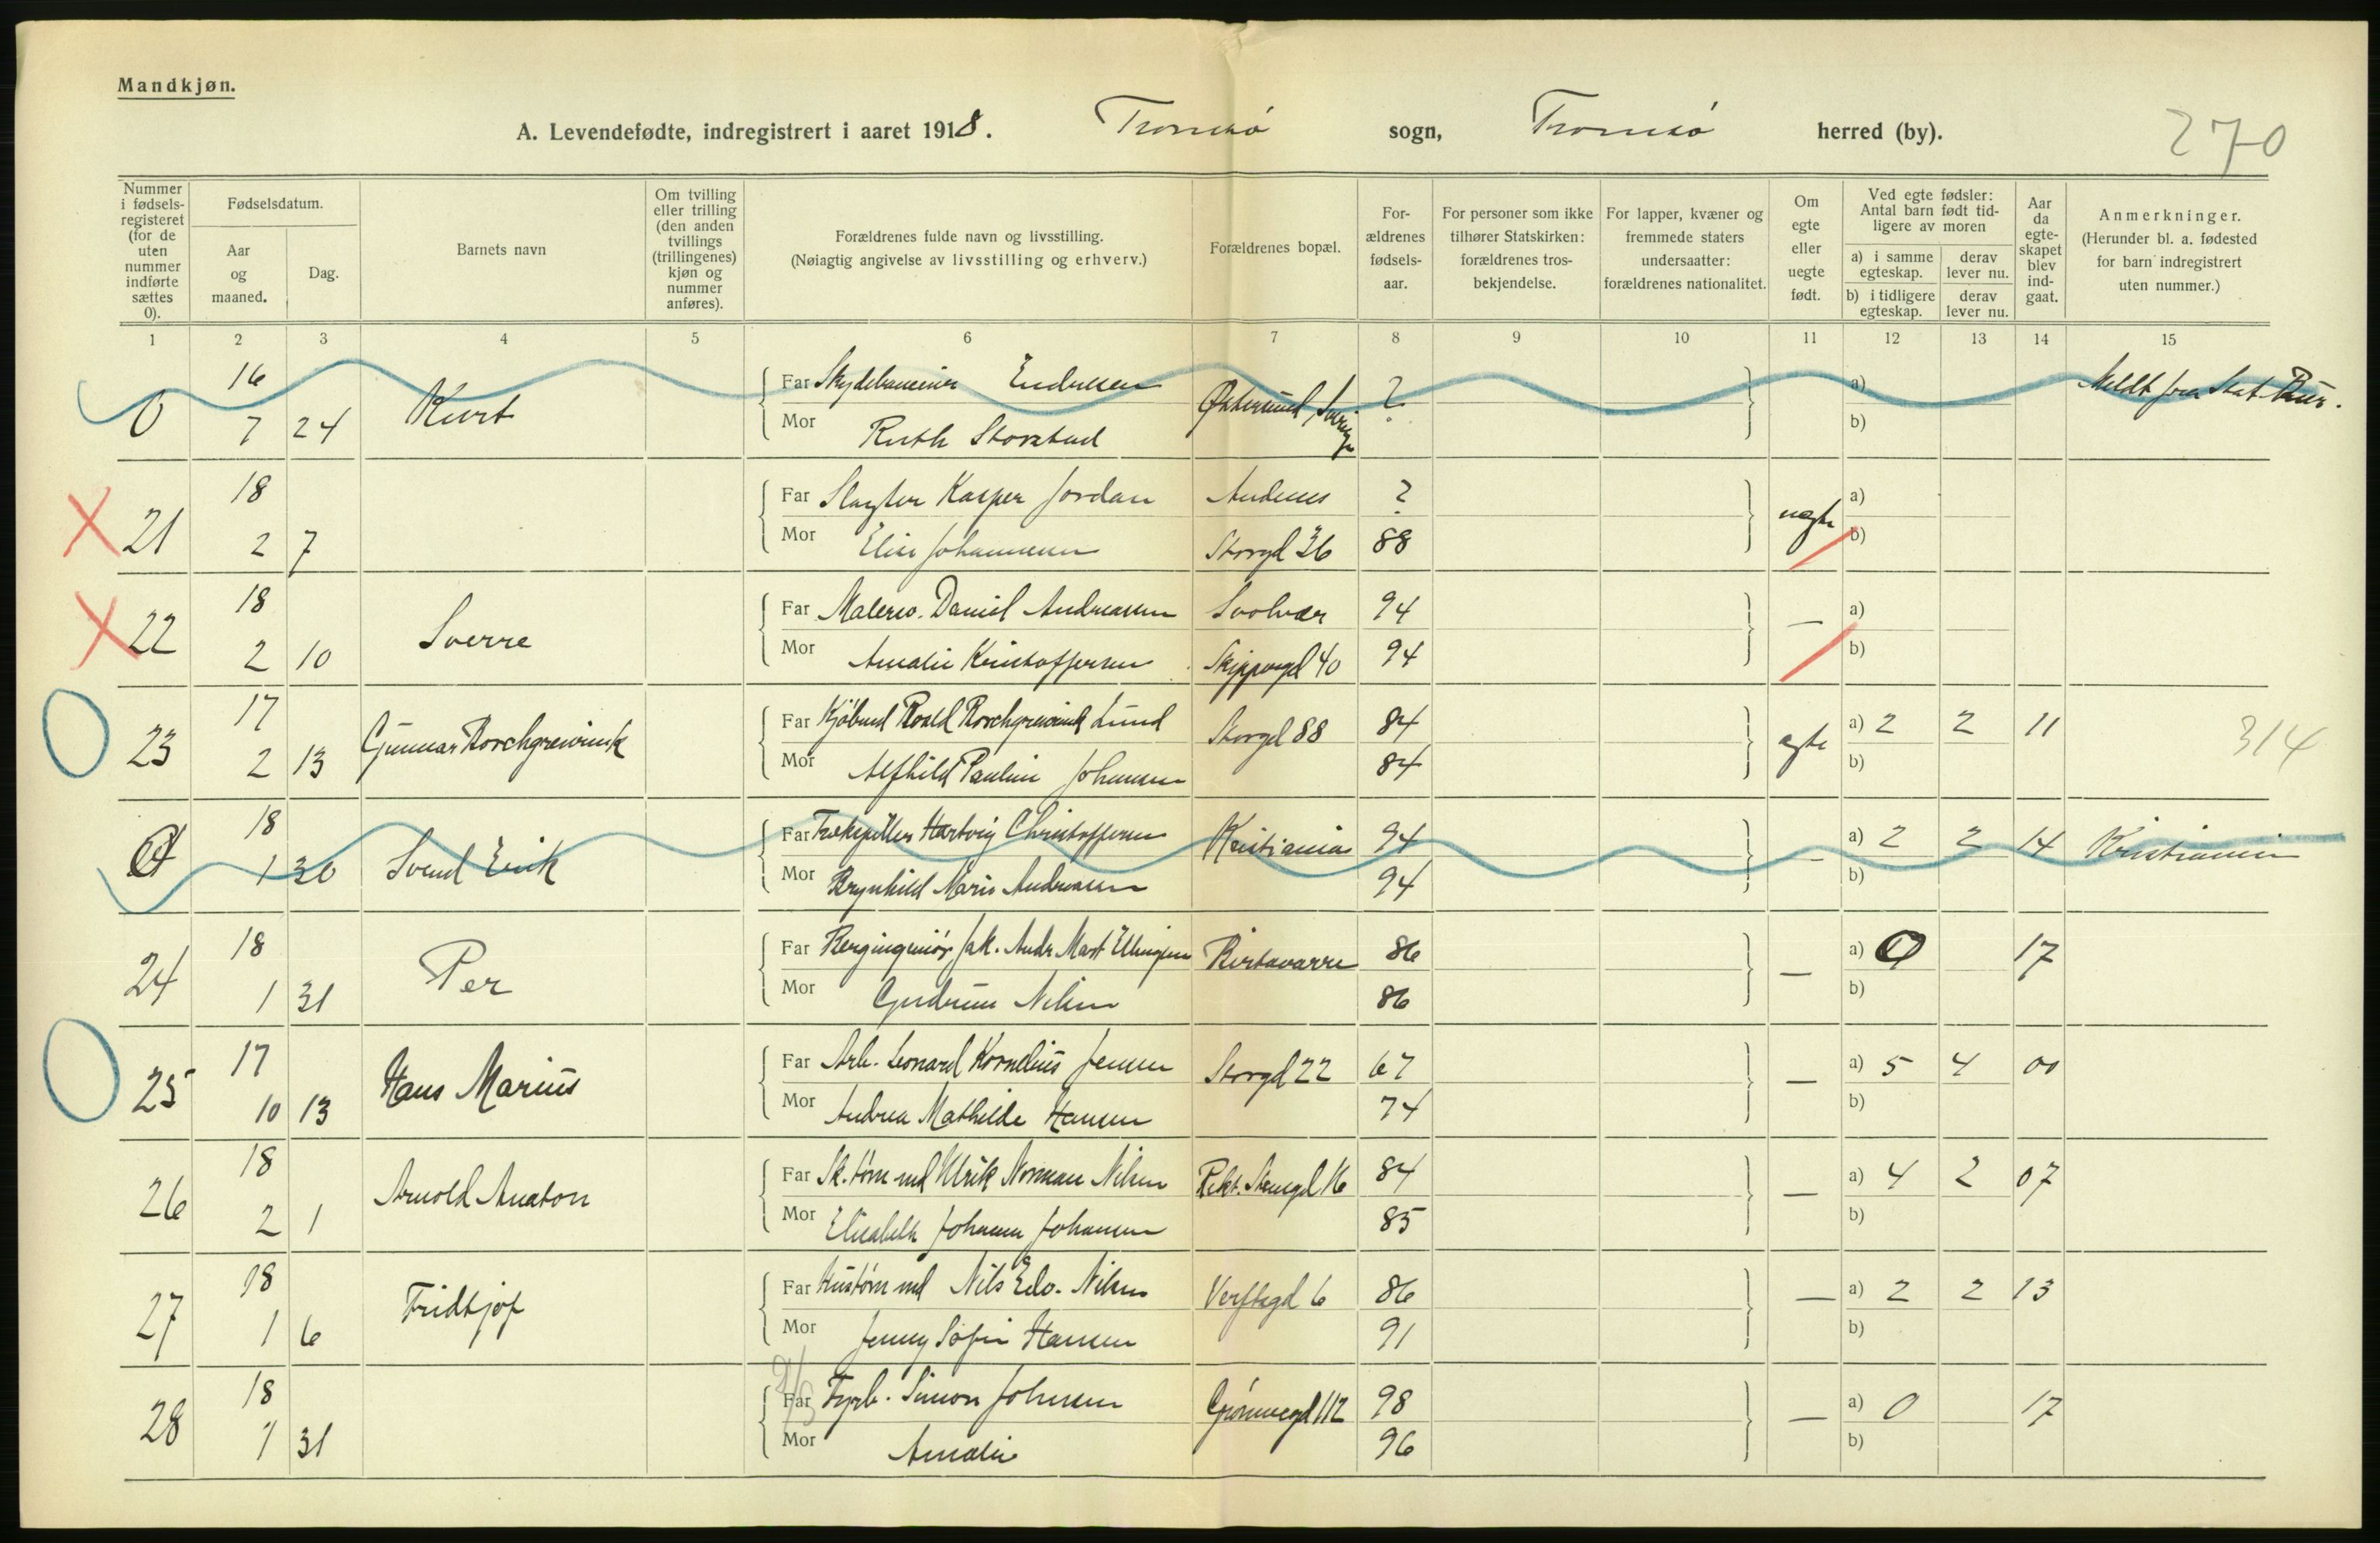 Mandkjøn.
A. Levendefødte, indregistrert i aaret 1918. Tromsø sogn, Tromsø herred (by). 270
Nummer i fødsels-registeret (for de uten nummer indførte sættes 0).
Fødselsdatum.
Aar og maaned.
Dag.
Barnets navn
Om tvilling eller trilling (den anden tvillings (trillingenes) kjøn og nummer anføres).
Forældrenes fulde navn og livsstilling.
(Nøiagtig angivelse av livsstilling og erhverv.)
Forældrenes bopæl.
For-ældrenes fødsels-aar.
For personer som ikke tilhører Statskirken: forældrenes tros-bekjendelse.
For lapper, kvæner og fremmede staters undersaatter: forældrenes nationalitet.
Om egte eller uegte født.
Ved egte fødsler: Antal barn født tid-ligere av moren
a) i samme egteskap. derav lever nu.
b) i tidligere egteskap. derav lever nu.
Aar da egte-skapet blev ind-gaat.
Anmerkninger.
(Herunder bl. a. fødested for barn indregistrert uten nummer.)
1 2 3 4 5 6 7 8 9 10 11 12 13 14 15
16 Far Endresen ? a) Meldt fra Stat. Bur.
0 7 24 Kurt Mor Ruth Storstad Østersund, Sverige b)
18 Far Slagter Kasper Jordan Andenes ? a)
21 2 7 Mor Elise Johannesen Storgd 36 88 uegte b)
18 Far Malersv. Daniel Andreassen Svolvær 94 a)
22 2 10 Sverre Mor Amalie Kristoffersen Skippergd 40 94 — b)
17 Far Kjøbmd Roald Borchgrevink Lund Storgd 88 84 a) 2 2 11
23 2 13 Gunnar Borchgrevink Mor Alfhild Pauline Johansen 84 egte b) 314
18 Far Hartvig Christoffersen Kristiania 94 a) 2 2 14 Kristiania
0 1 30 Svend Erik Mor Brynhild Marie Andreassen 94 — b)
18 Far Bergingeniør Jak. Andr. Mart. Ellingsen Birtavarre 86 a) 0 17
24 1 31 Per Mor Gudrun Nilsen 86 — b)
17 Far Arb. Leonard Kornelius Jensen Storgd 22 67 a) 5 4 00
25 10 13 Hans Marius Mor Andrea Mathilde Hansen 74 — b)
18 Far Sk.tømmd Ulrik Norman Nilsen Rekt. Stengd 16 84 a) 4 2 07
26 2 1 Arnold Anaton Mor Elisabeth Johanna Johansen 85 — b)
18 Far Hustømmd Nils Edv. Nilsen Verftsgd 6 86 a) 2 2 13
27 1 6 Fridtjof Mor Jenny Sofie Hansen 91 — b)
18 Far Fyrb. Simon Johnsen Grønnegd 112 98 a) 0 17
28 1 31 Mor Amalie 96 — b)